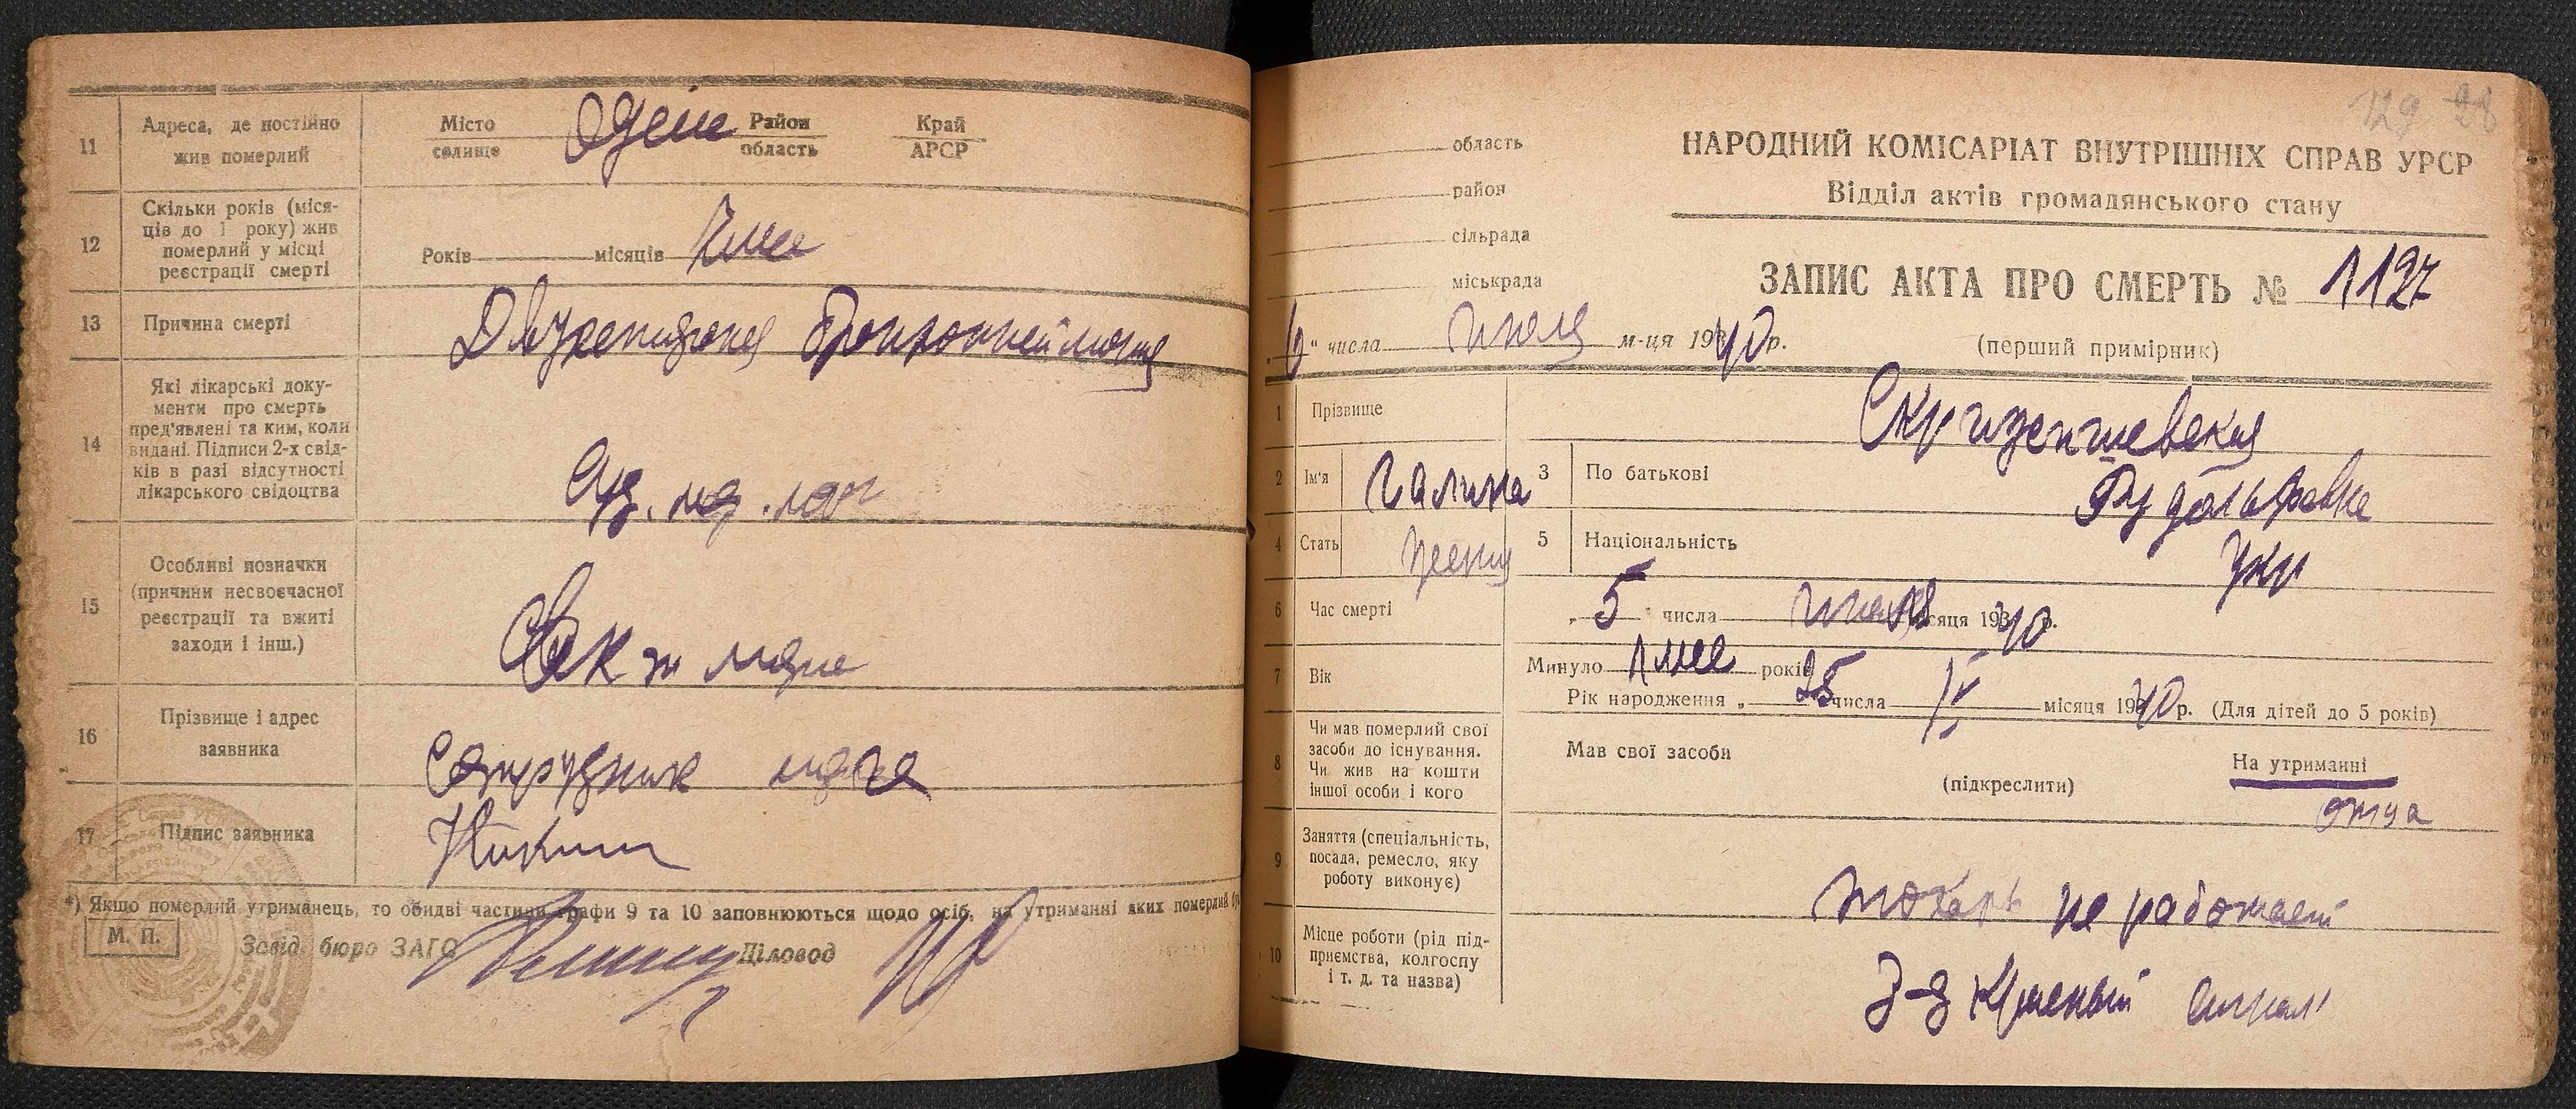 11
Адреса, де постійно
жив померлий
Місто
селище
Одеса
Район
область
Край
АРСР
12
Скільки років (міся-
ців до 1 року) жив
померлий у місці
реєстрації смерті
Років
місяців
13
Причина смерті
Двухсторонняя бронхопневмония
14
Які лікарські доку-
менти про смерть
пред'явлені та ким, коли
видані. Підписи 2-х свід-
ків в разі відсутності
лікарського свідоцтва
15
Особливі позначки
(причини несвоєчасної
реєстрації та вжиті
заходи і інш.)
16
Прізвище і адрес
заявника
Сотрудник
17
Підпис заявника
*) Якщо померлий утриманець, то обидві частини графи 9 та 10 заповнюються щодо осіб, на утриманні яких померлий
М. П.
Завід. бюро ЗАГС
Діловод
129 28
область
район
сільрада
міськрада
НАРОДНИЙ КОМІСАРІАТ ВНУТРІШНІХ СПРАВ УРСР
Відділ актів громадянського стану
ЗАПИС АКТА ПРО СМЕРТЬ № 1127
(перший примірник)
„6" числа июля м-ця 1940 р.
1
Прізвище
2
Ім'я
Галина
3
По батькові
Рудольфовна
4
Стать
женщ
5
Національність
укр
6
Час смерті
„5" числа июля місяця 1940 р.
7
Вік
Минуло 1 мес років
Рік народження „25 числа V місяця 1940 р. (Для дітей до 5 років)
8
Чи мав померлий свої
засоби до існування.
Чи жив на кошти
іншої особи і кого
Мав свої засоби
(підкреслити)
На утриманні
отца
9
Заняття (спеціальність,
посада, ремесло, яку
роботу виконує)
токарь не работает
10
Місце роботи (рід під-
приємства, колгоспу
і т. д. та назва)
з-д Красный сигнал